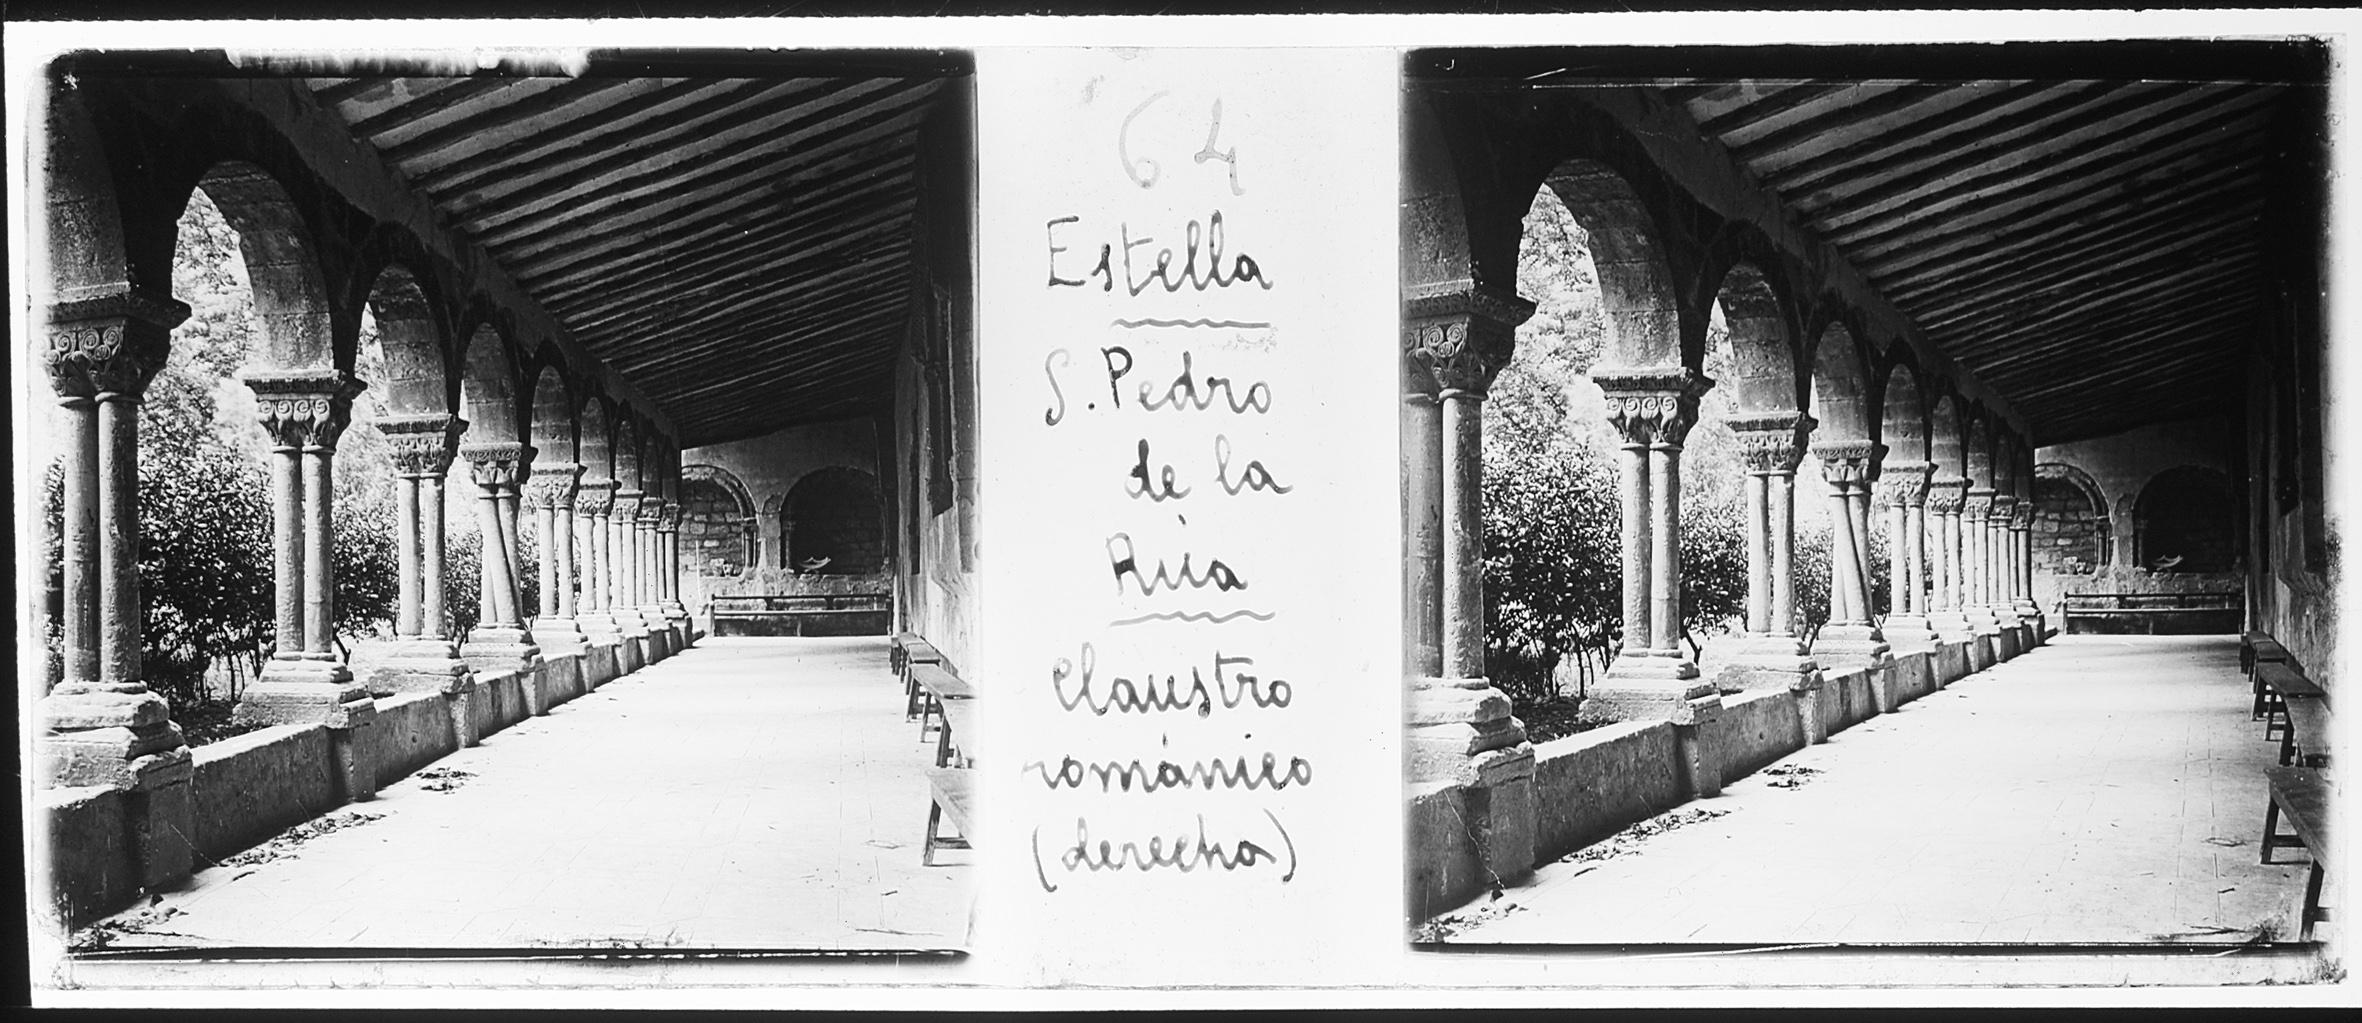 64
Estella
S. Pedro
de la
Rúa
Claustro
románico
(derecha)